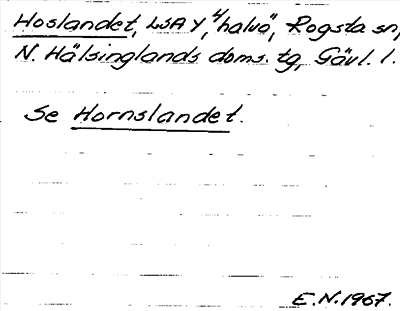 Hoslandet, LSA Y, 4 halvö, Rogsta sn,
N. Hälsinglands doms. tg, Gävl. l.
Se Hornslandet.
E.N. 1967.